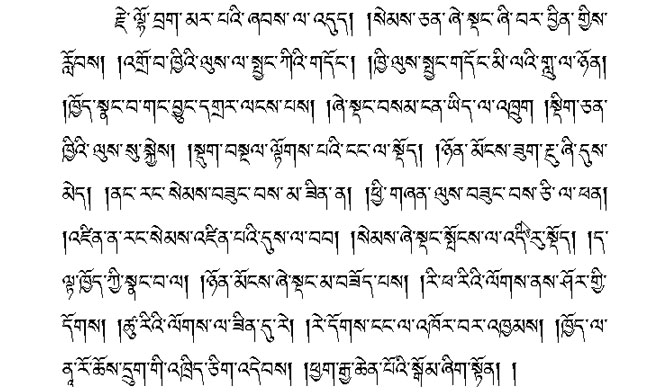 རྗེ་ལྷོ་བྲག་མར་པའི་ཞབས་ལ་འདུད། །སེམས་ཅན་ཞེ་སྡང་ཞི་བར་བྱིན་གྱིས་
རློབས། །འགྲོ་བ་ཁྱིའི་ལུས་ལ་སྤྱང་ཀིའི་གདོང་། །ཁྱི་ལུས་སྤྱང་གདོང་མི་ལའི་གླུ་ལ་ཉོན།
།ཁྱོད་སྣང་བ་གང་བྱུང་དགྲར་ལངས་པས། །ཞེ་སྡང་བསམ་ངན་ཡིད་ལ་འཁྲུག །སྡིག་ཅན་
ཁྱིའི་ལུས་སུ་སྐྱེས། །སྡུག་བསྔལ་ལྟོགས་པའི་ངང་ལ་སྡོད། །ཉོན་མོངས་ཟུག་རྔུ་ཞི་དུས་
མེད། །ནང་རང་སེམས་བཟུང་བས་མ་ཟིན་ན། །ཕྱི་གཞན་ལུས་བཟུང་བས་ཅི་ལ་ཕན།
།འཛིན་ན་རང་སེམས་འཛིན་པའི་དུས་ལ་བབ། །སེམས་ཞེ་སྡང་སྤོངས་ལ་འདིརུ་སྡོད། །ད་
ལྟ་ཁྱོད་ཀྱི་སྣང་བ་ལ། །ཉོན་མོངས་ཞེ་སྡང་མ་བཟོད་པས། །རི་ཕ་རིའི་ལོགས་ནས་ཤོར་གྱི་
དོགས། །ཚུ་རིའི་ལོགས་ལ་ཟིན་དུ་རེ། །རེ་དོགས་ངང་ལ་འཁོར་བར་འཁྱམས། །ཁྱོད་ལ་
ནཱ་རོ་ཆོས་དྲུག་གི་འཁྲིད་ཅིག་འདེབས། །ཕྱག་རྒྱ་ཆེན་པོའི་སྒོམ་ཞིག་སྟོན། །